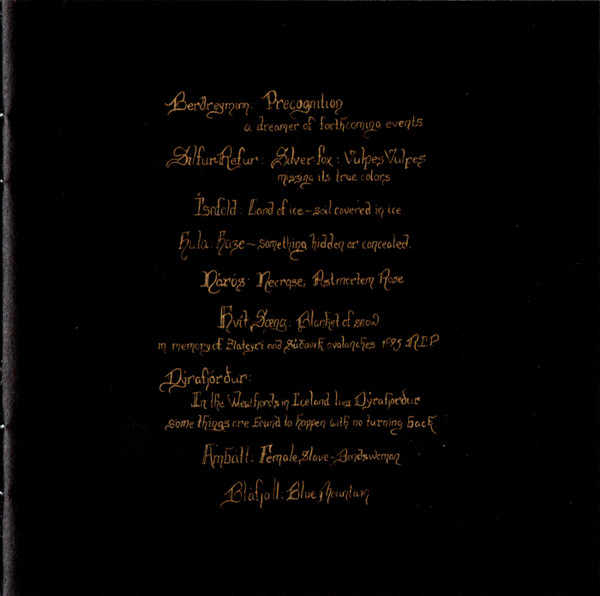 Berdreyminn: Precognition
a dreamer of forthcoming events
Silfur-Refur: Silver-fox: Vulpes Vulpes
missing its true colors
Ísafold: Land of ice – soil covered in ice
Hula: Haze – something hidden or concealed.
Náros: Necrose, Postmortem Rose
Hvít Sæng: Blanket of snow
in memory of Flateyri and Súðavík avalanches 1995 R.I.P
Dýrafjörður:
In the Westfjords in Iceland lies Dýrafjörður
some things are bound to happen with no turning back
Ambátt: Female, Slave – Bondswoman
Bláfjall: Blue Mountain